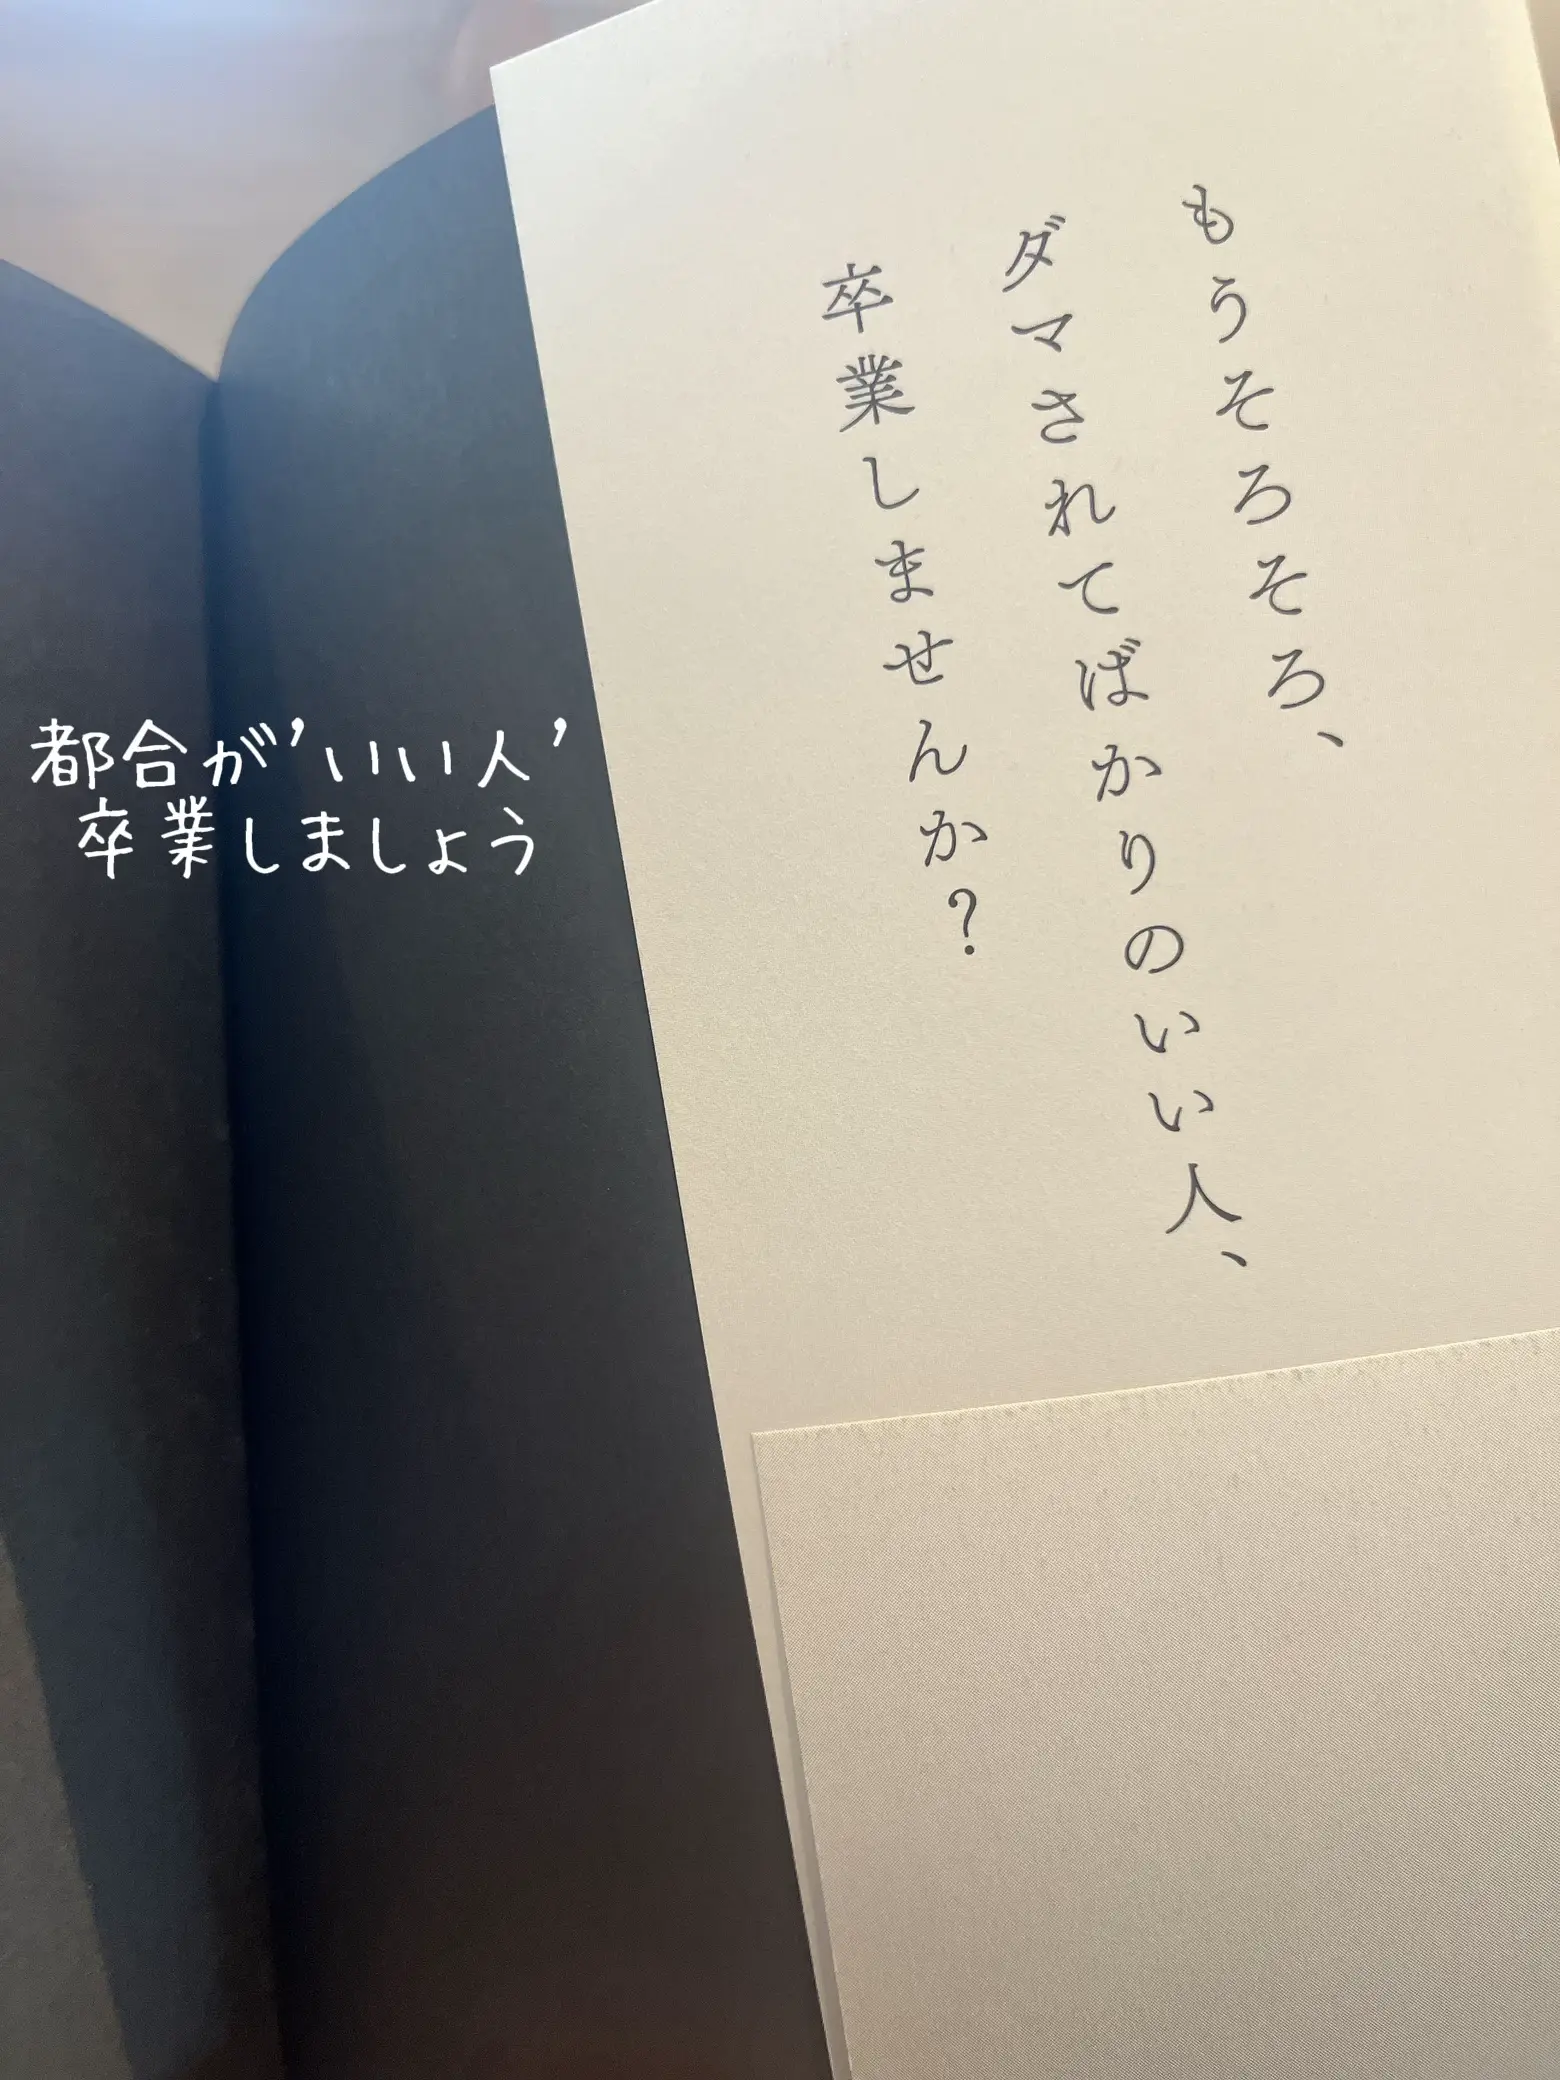 もうそろそろ、
ダマされてばかりのいい人、
卒業しませんか?
都合が'いい人'
卒業しましょう